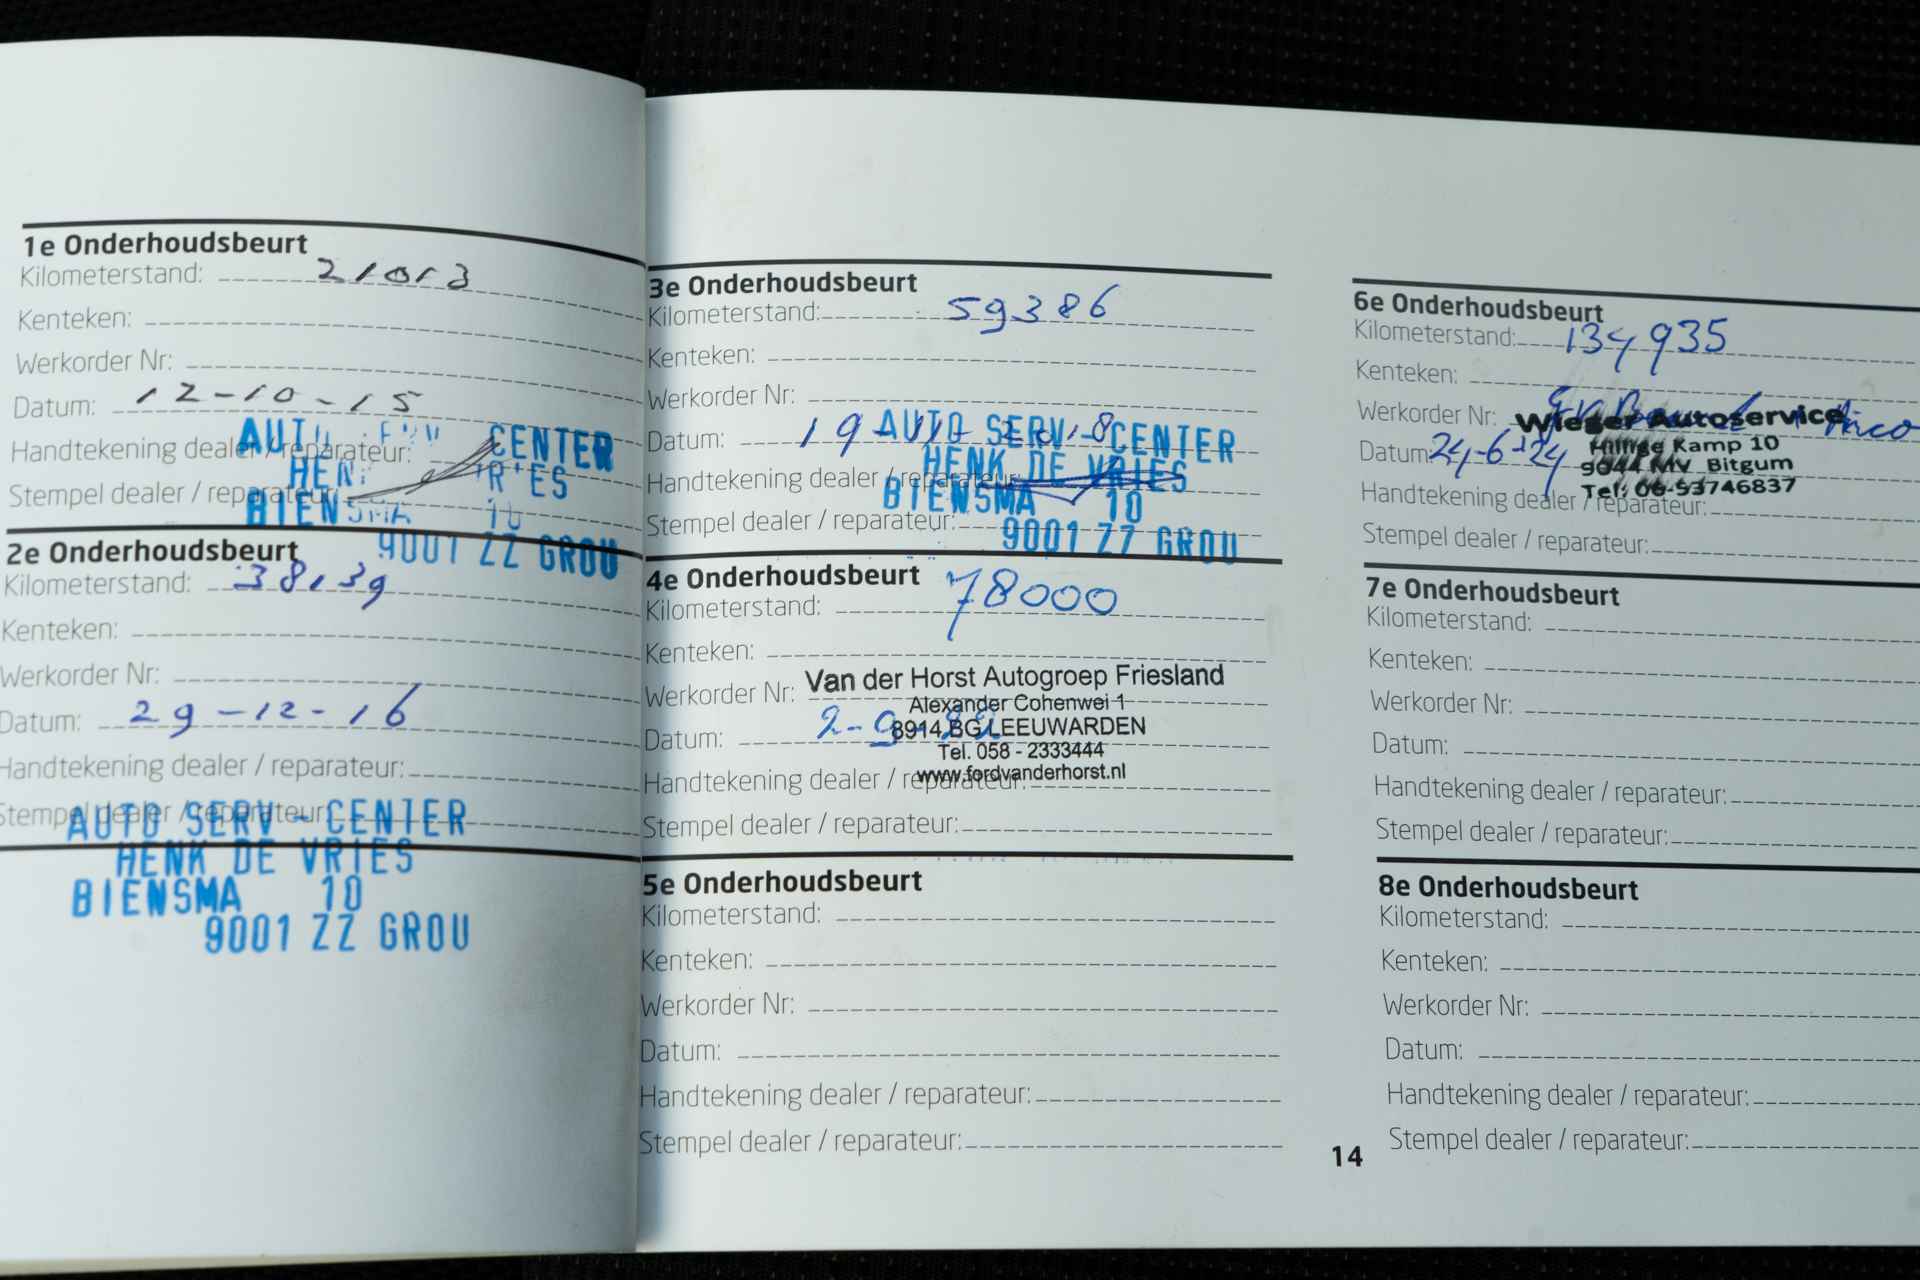 1e Onderhoudsbeurt
Kilometerstand: 21013
Kenteken:
Werkorder Nr:
Datum: 12-10-15
Handtekening dealer / reparateur:
Stempel dealer / reparateur:
AUTO CENTER
HEN
BIENSMA 10
9001 ZZ GROU
2e Onderhoudsbeurt
Kilometerstand: 38139
Kenteken:
Werkorder Nr:
Datum: 29-12-16
Handtekening dealer / reparateur:
Stempel dealer / reparateur:
AUTO SERV-CENTER
HENK DE VRIES
BIENSMA 10
9001 ZZ GROU
3e Onderhoudsbeurt
Kilometerstand: 59386
Kenteken:
Werkorder Nr:
Datum: 19
AUTO SERV-CENTER
HENK DE VRIES
Handtekening dealer / reparateur:
BIENSMA 10
Stempel dealer / reparateur:
9001 ZZ GROU
4e Onderhoudsbeurt
Kilometerstand: 78000
Kenteken:
Werkorder Nr:
Van der Horst Autogroep Friesland
Alexander Cohenwei 1
8914 BG LEEUWARDEN
Tel. 058 - 2333444
www.fordvanderhorst.nl
Datum: 2-9-
Handtekening dealer / reparateur:
Stempel dealer / reparateur:
5e Onderhoudsbeurt
Kilometerstand:
Kenteken:
Werkorder Nr:
Datum:
Handtekening dealer / reparateur:
Stempel dealer / reparateur:
6e Onderhoudsbeurt
Kilometerstand: 134935
Kenteken:
Werkorder Nr:
Wieger Autoservice
Kamp 10
9044 MV Bitgum
Tel: 06-53746837
Datum: 24-6-24
Handtekening dealer / reparateur:
Stempel dealer / reparateur:
7e Onderhoudsbeurt
Kilometerstand:
Kenteken:
Werkorder Nr:
Datum:
Handtekening dealer / reparateur:
Stempel dealer / reparateur:
8e Onderhoudsbeurt
Kilometerstand:
Kenteken:
Werkorder Nr:
Datum:
Handtekening dealer / reparateur:
Stempel dealer / reparateur:
14